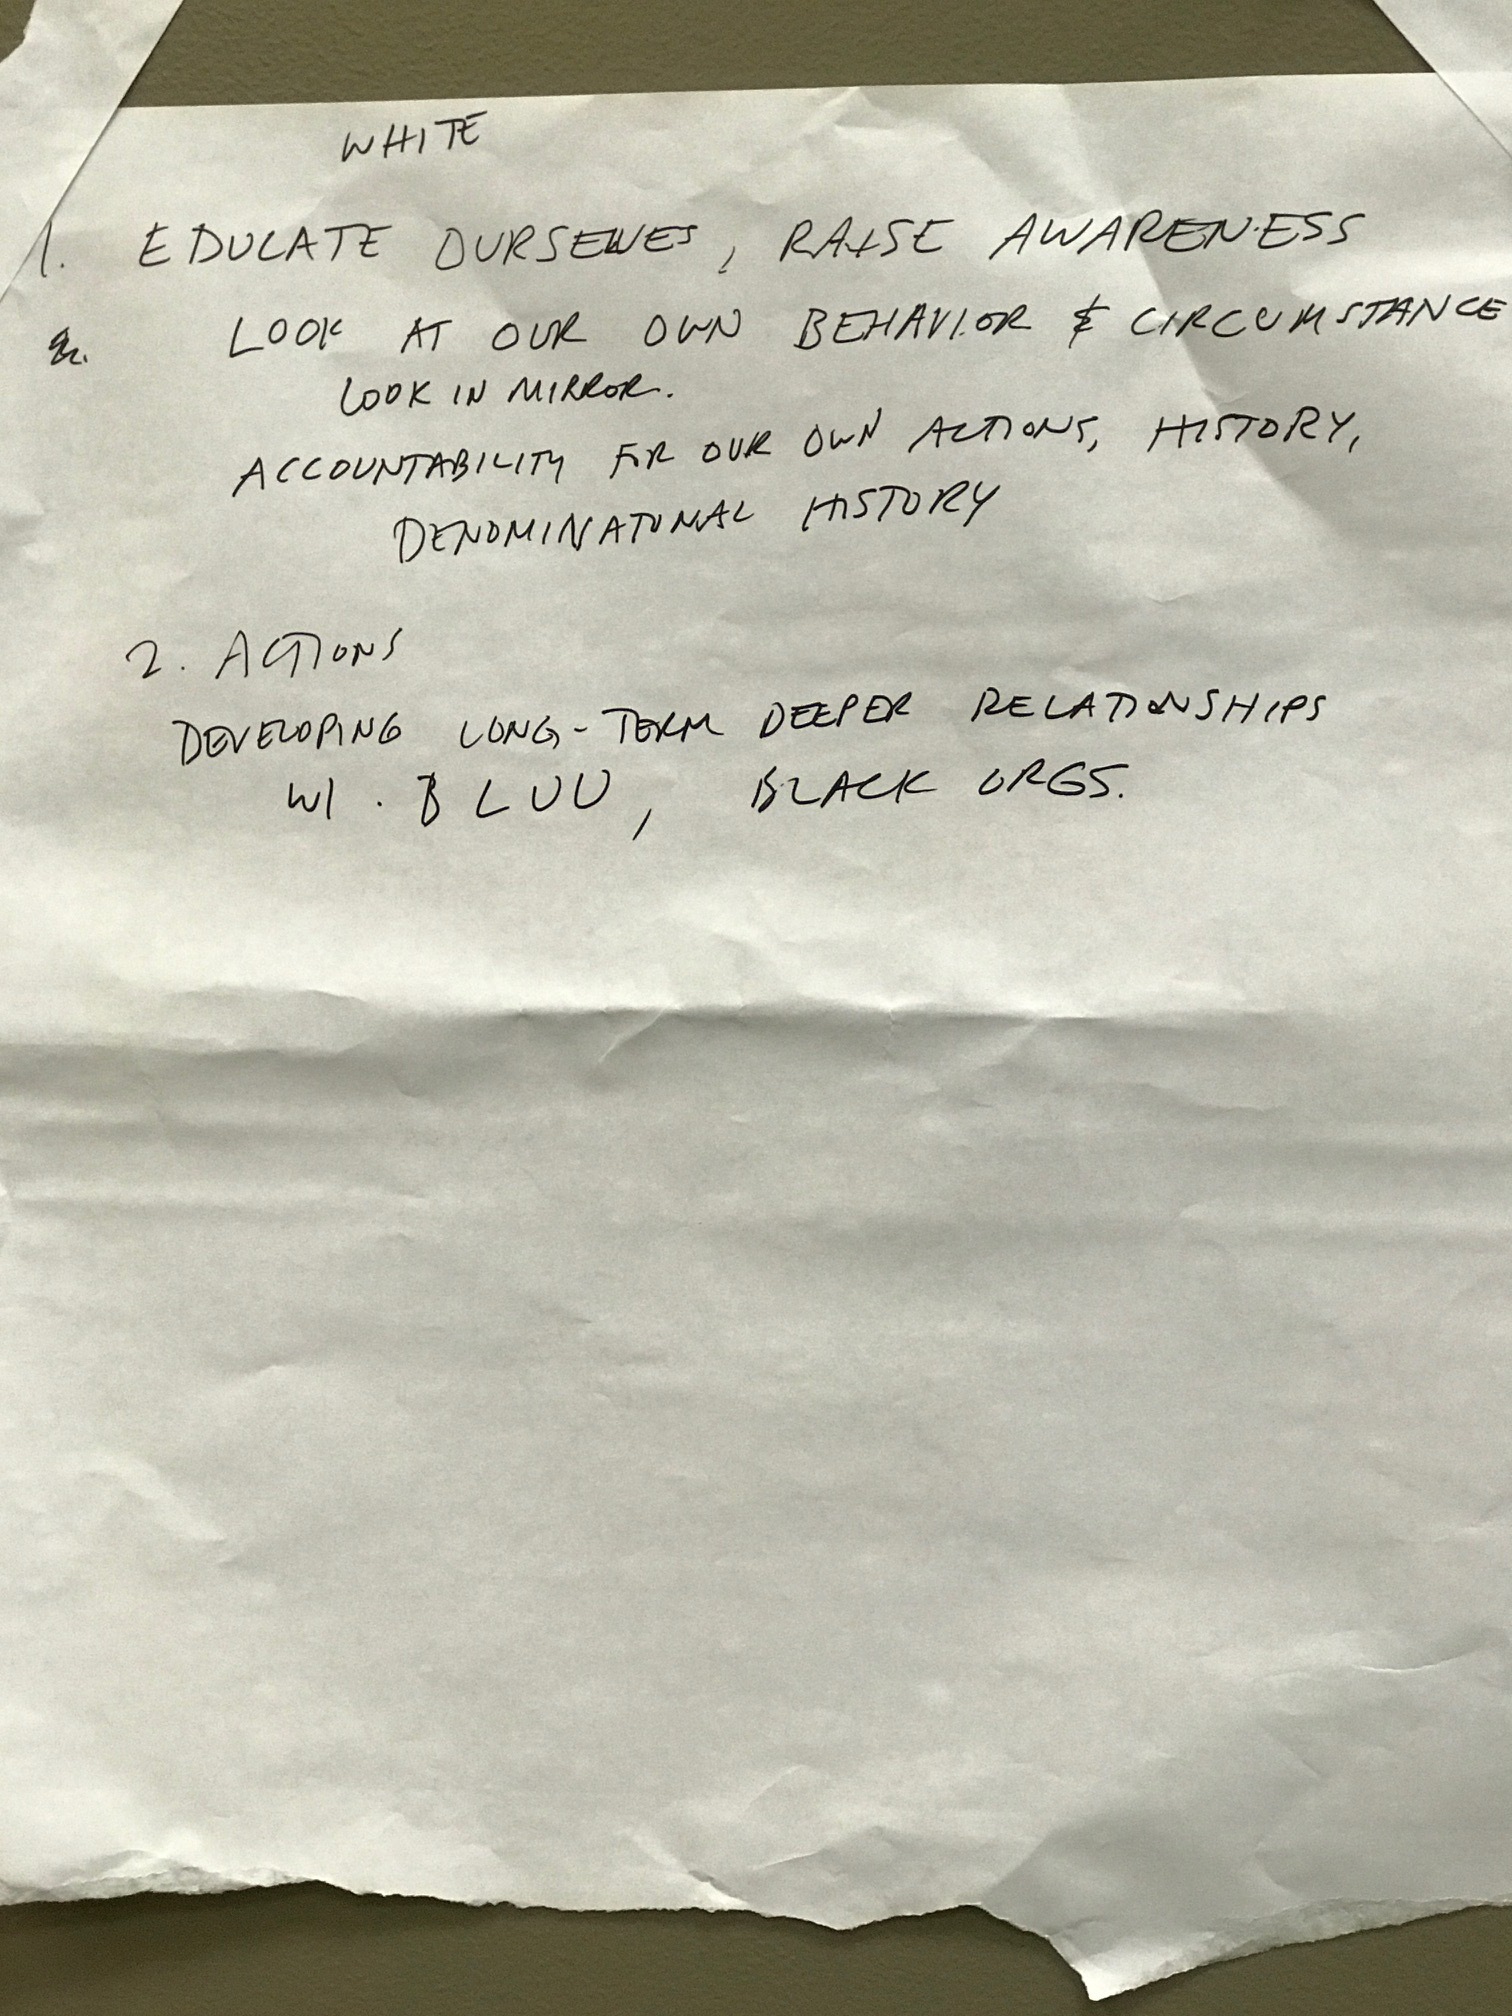 WHITE
1. EDUCATE OURSELVES, RAISE AWARENESS
LOOK AT OUR OWN BEHAVIOR & CIRCUMSTANCE
LOOK IN MIRROR.
ACCOUNTABILITY FOR OUR OWN ACTIONS, HISTORY,
DENOMINATONAL HISTORY
2. ACTIONS
DEVELOPING LONG-TERM DEEPER RELATIONSHIPS
W/ . BLUU, BLACK ORGS.